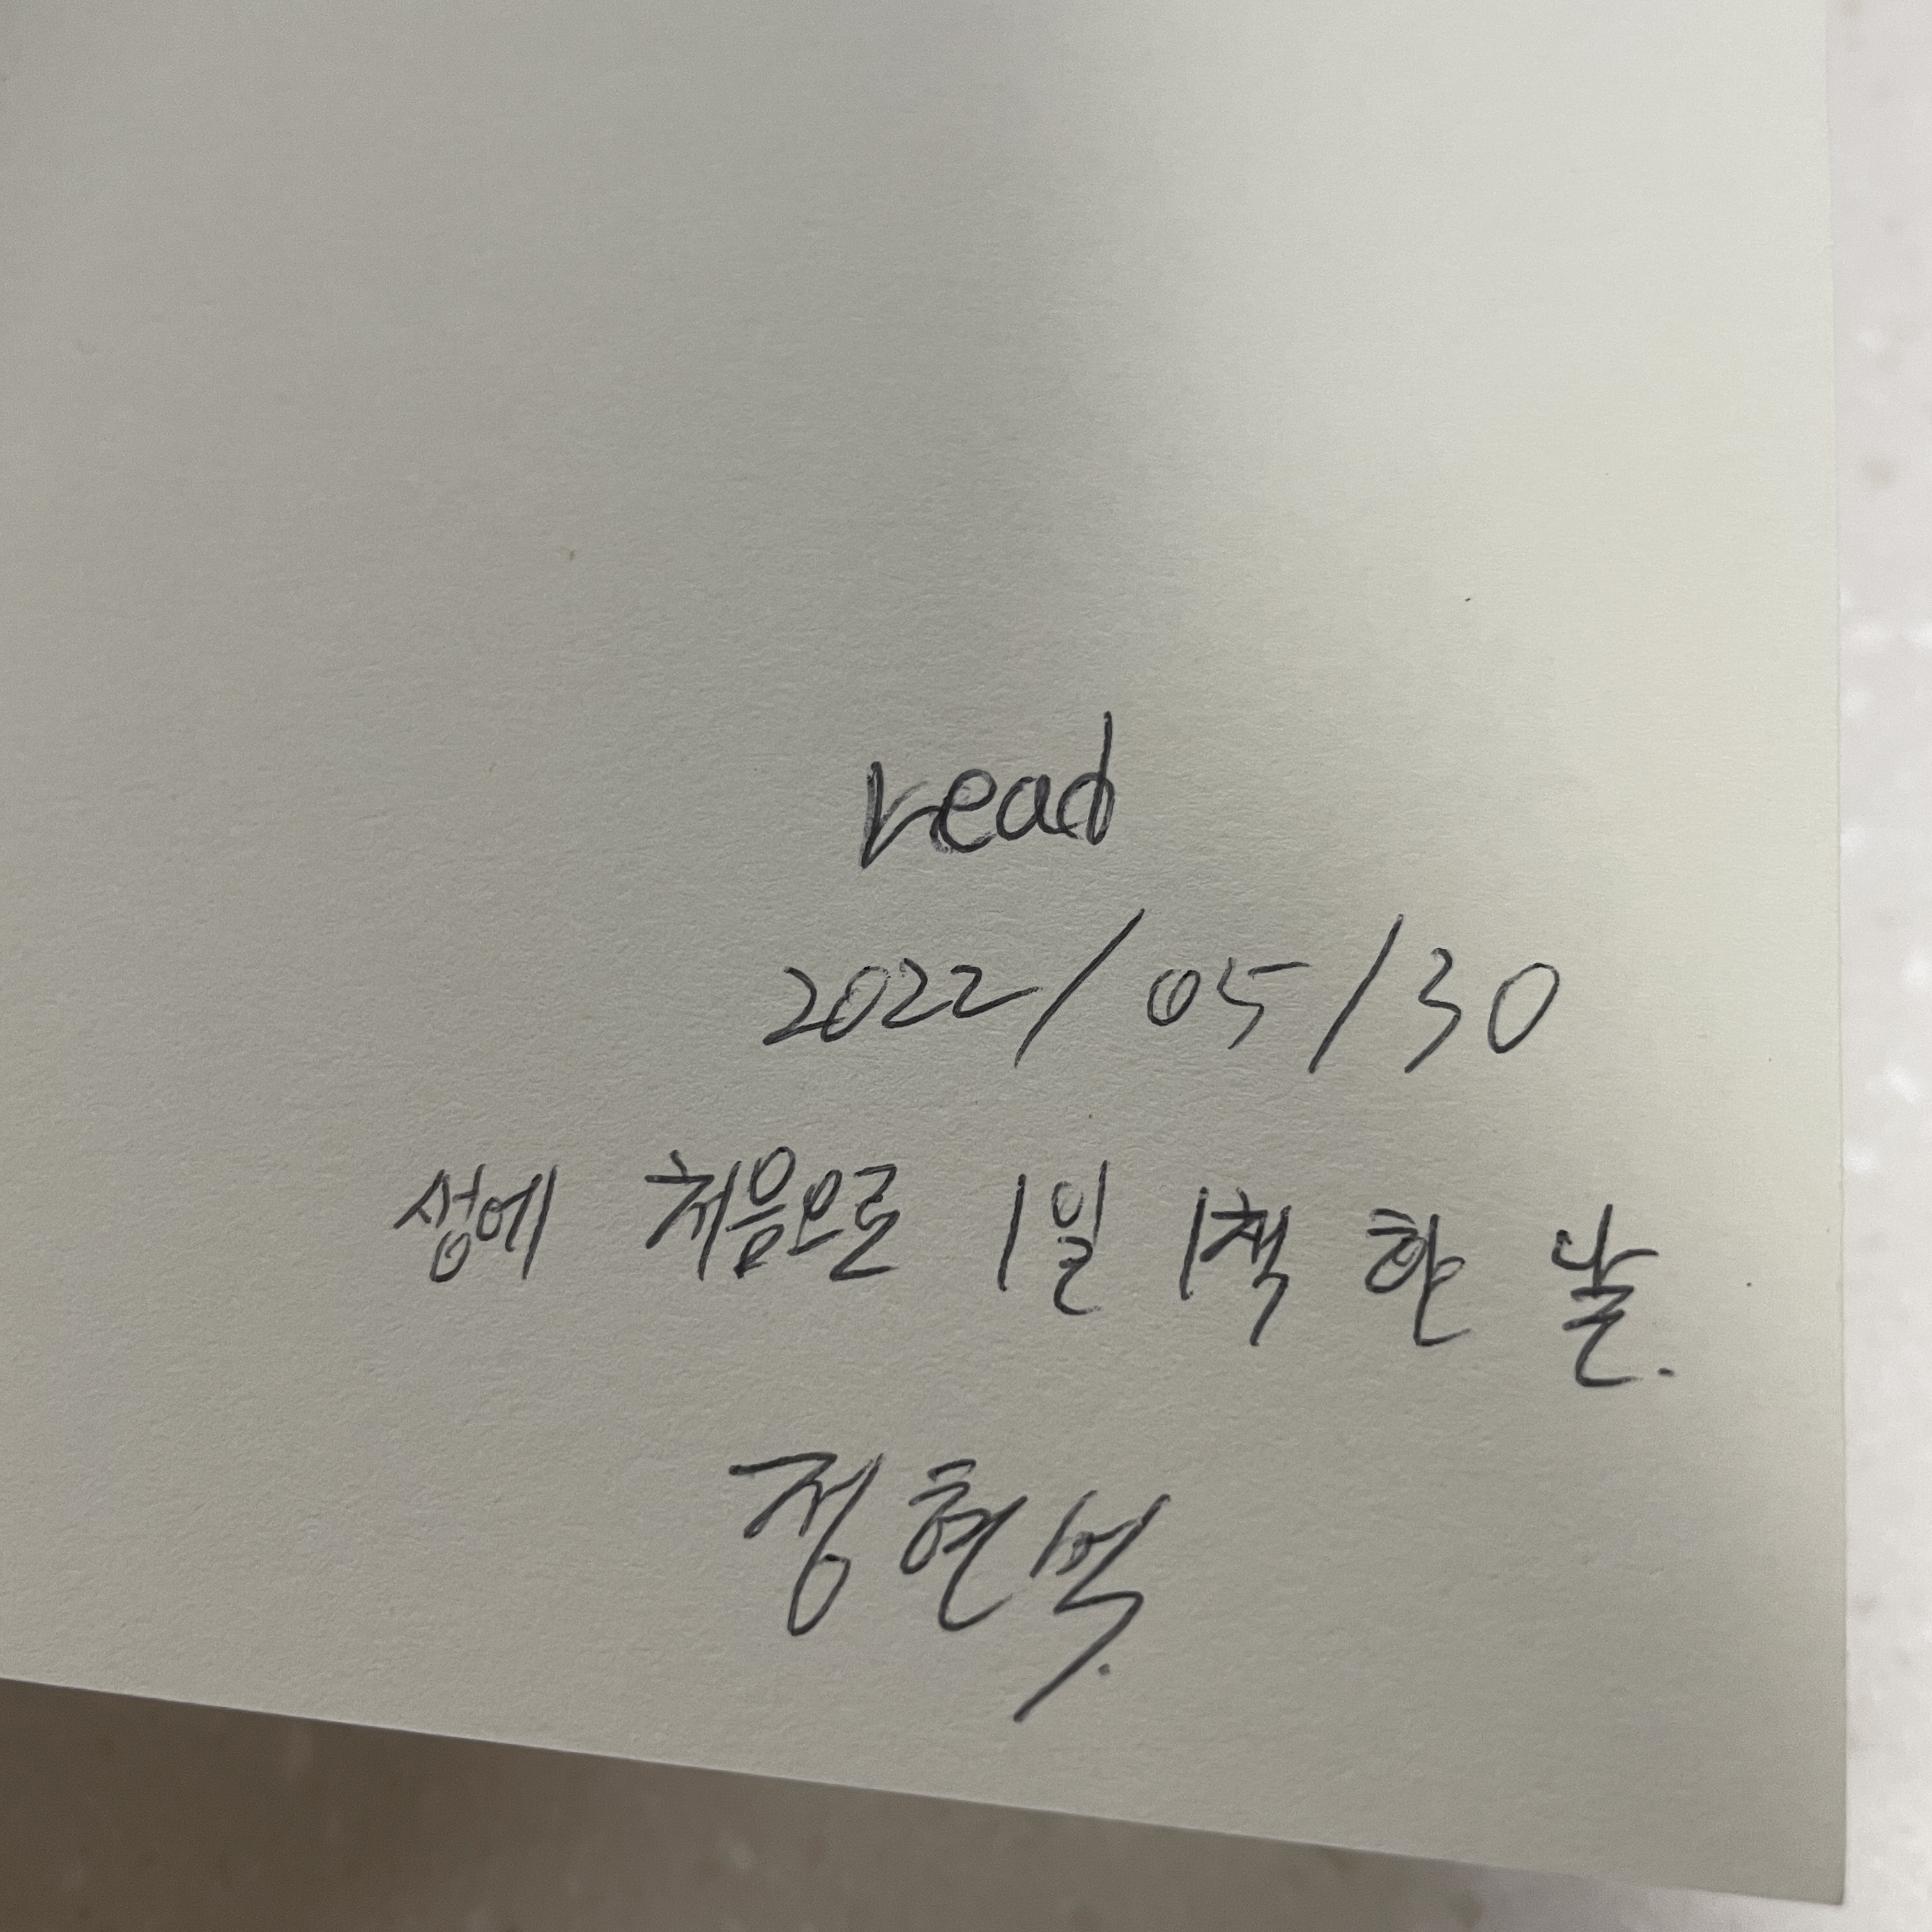 read
2022/05/30
생에 처음으로 1일 1책 한 날.
정현벅.